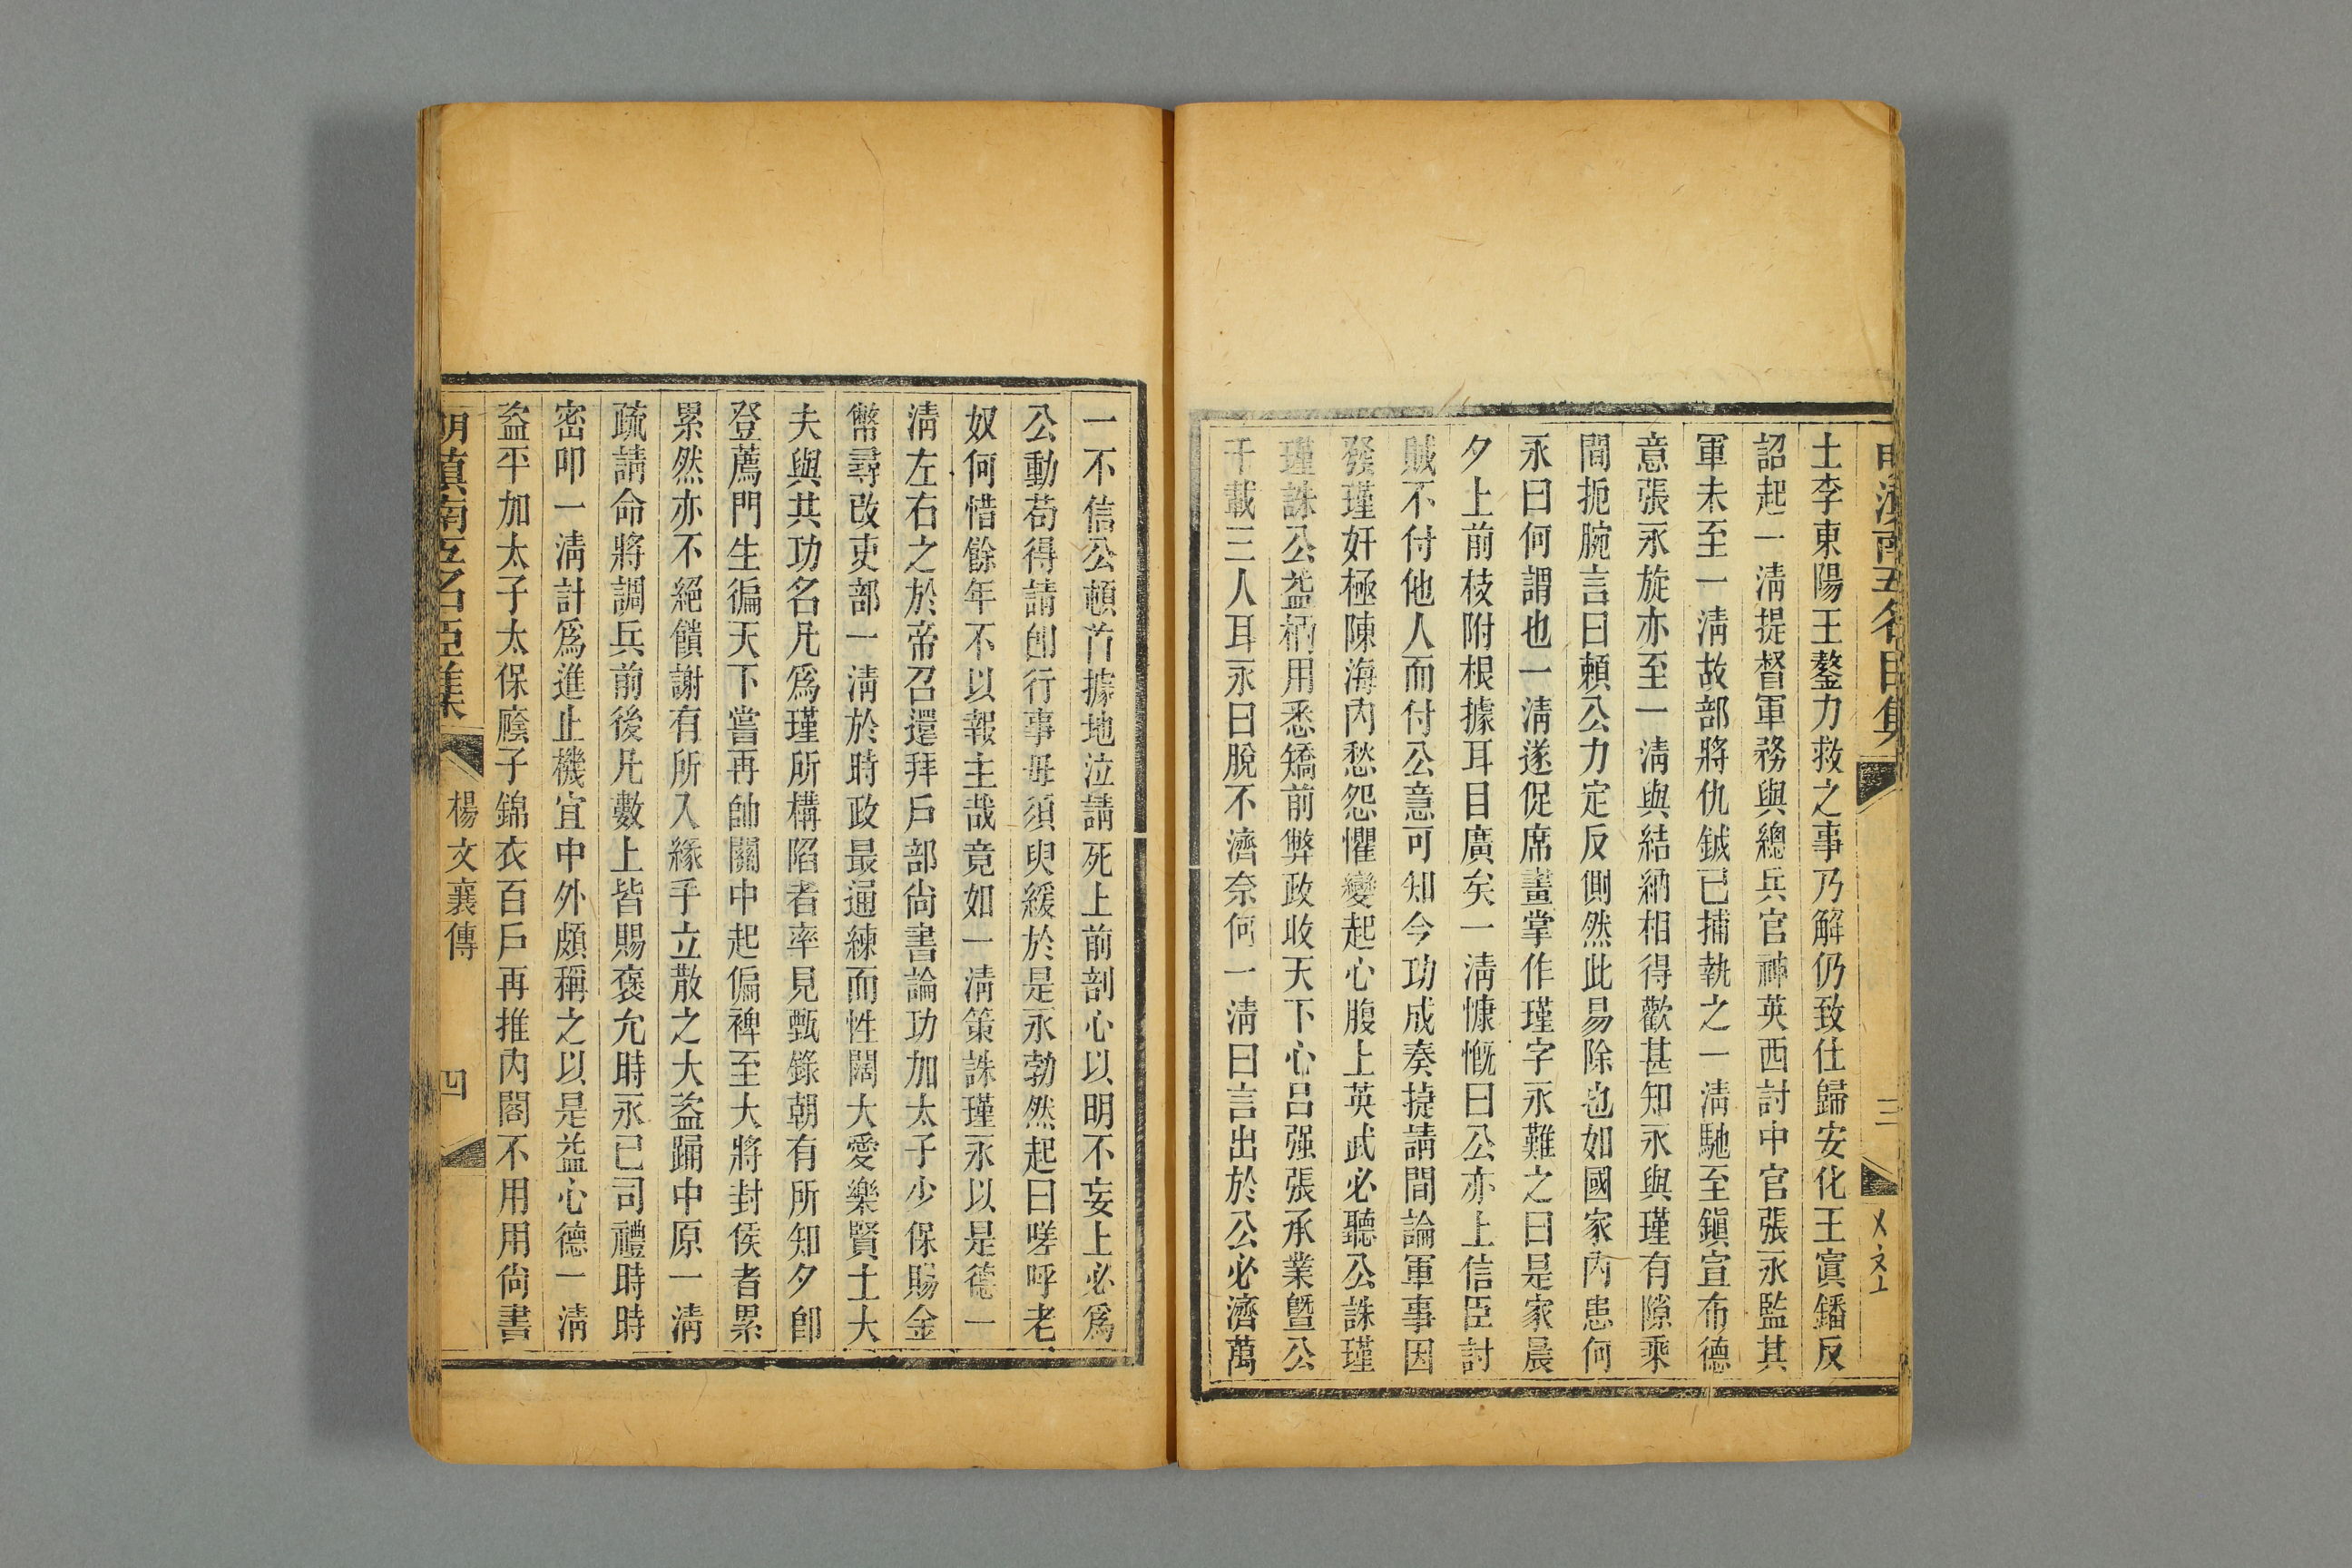 士李東陽王鏊力救之事乃解仍致仕歸安化王寘鐇反
詔起一淸提督軍務與總兵官神英西討中官張永監其
軍未至一淸故部將仇鉞已捕執之一淸馳至鎭宣布德
意張永旋亦至一淸與結納相得歡甚知永與瑾有隙乘
間扼腕言曰賴公力定反側然此易除也如國家內患何
永曰何謂也一淸遂促席畫掌作瑾字永難之曰是家晨
夕上前枝附根據耳目廣矣一淸慷慨曰公亦上信臣討
賊不付他人而付公意可知今功成奏捷請間論軍事因
發瑾奸極陳海內愁怨懼變起心腹上英武必聽公誅瑾
瑾誅公益柄用悉矯前弊政收天下心呂强張承業曁公
千載三人耳永曰脫不濟奈何一淸曰言出於公必濟萬
一不信公頓首據地泣請死上前剖心以明不妄上必爲
公動苟得請卽行事毋須臾緩於是永勃然起曰嗟呼老
奴何惜餘年不以報主哉竟如一淸策誅瑾永以是德一
淸左右之於帝召還拜戶部尙書論功加太子少保賜金
幣尋改吏部一淸於時政最通練而性闊大愛樂賢士大
夫與共功名凡爲瑾所構陷者率見甄錄朝有所知夕卽
登薦門生徧天下嘗再帥關中起偏裨至大將封侯者累
累然亦不絕饋謝有所入緣手立散之大盜踊中原一淸
疏請命將調兵前後凡數上皆賜褒允時永已司禮時時
密叩一淸計爲進止機宜中外頗稱之以是益心德一淸
盜平加太子太保廕子錦衣百戶再推內閣不用用尙書
明滇南五名臣集
楊文襄傳
四